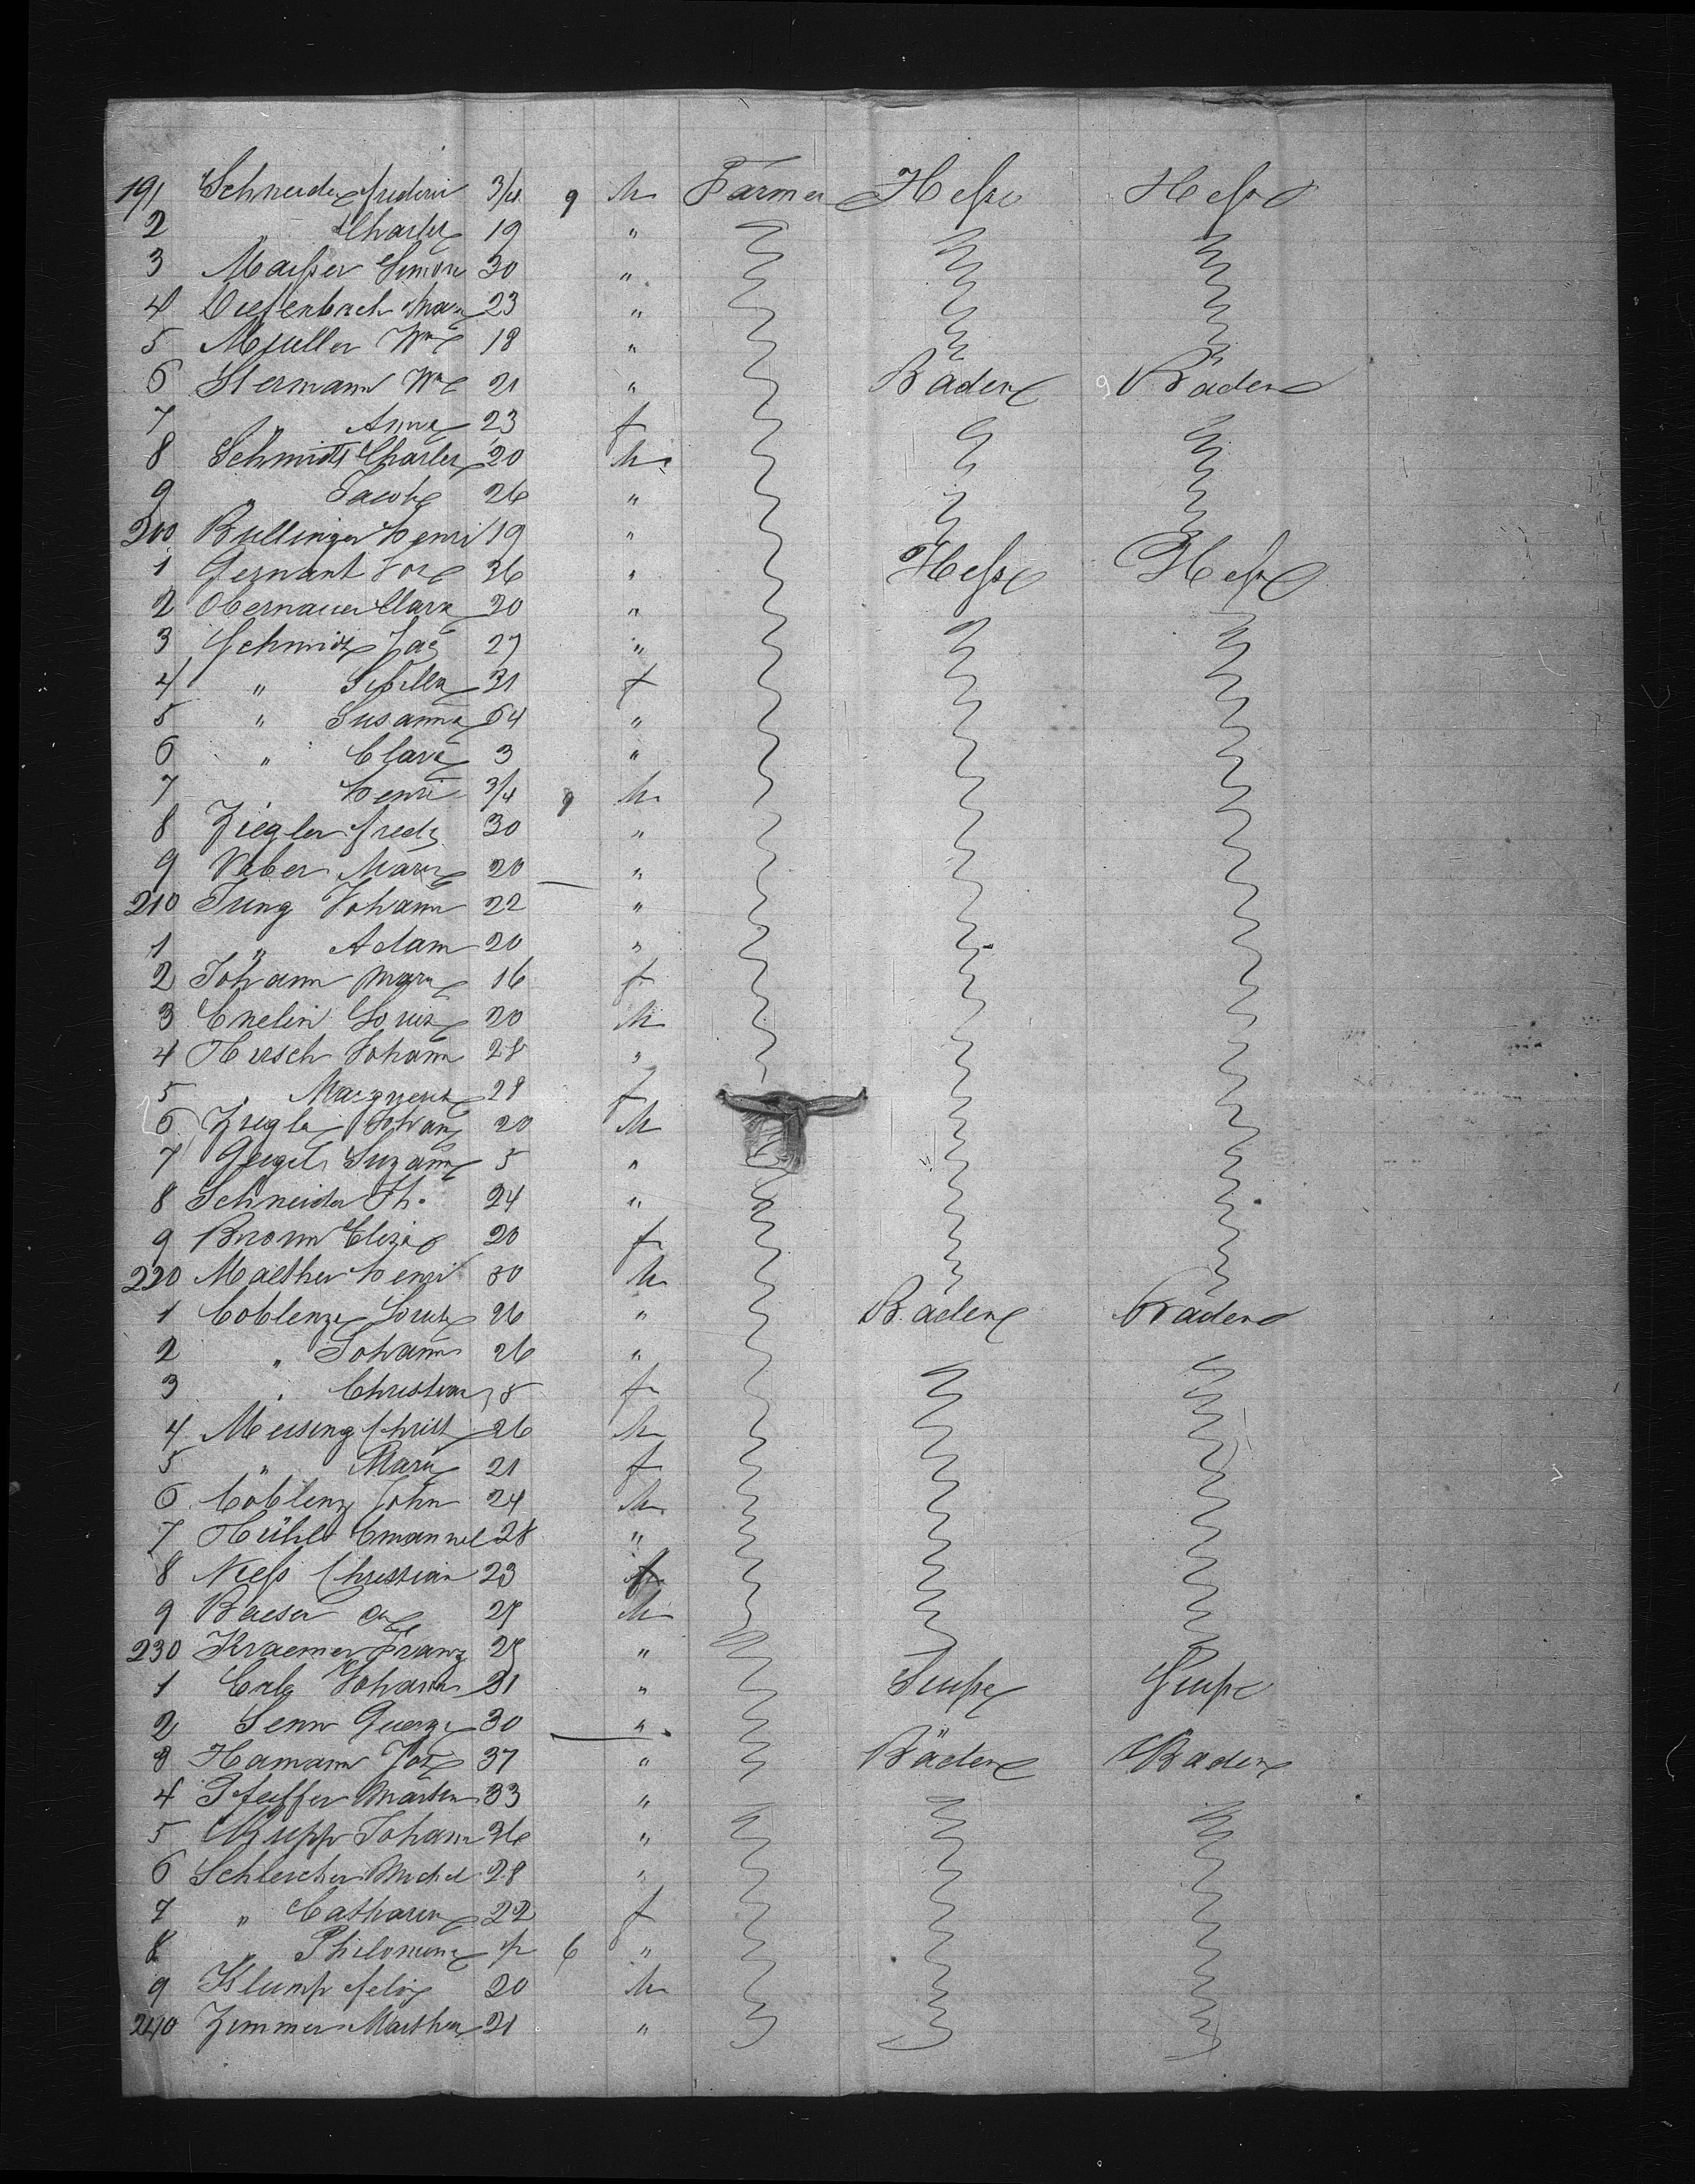 191 Schneider frederic 3/4 9 M Farmer Hesse Hesse
2 " Charles 19 "
3 Maisser Simon 30 "
4 Diefenbach 23 "
5 Muller Wm 18 "
6 Stermann Wm 21 " Baden Baden
7 " Anna 23 f
8 Schmidt Charles 20 M
9 " Jacob 26 "
200 Bullinger Henri 19 "
1 Gernant Jos 36 " Hesse Hesse
2 Obernauer Clara 20 "
3 Schmidt Jac 27 "
4 " Sibilla 31 f
5 " Susanna 64 "
6 " Clara 3 "
7 Henri 3/4 9 M
8 Ziegler fredr 30 "
9 Weber Marie 20 "
210 Jung Johann 22 "
1 " Adam 20 "
2 Johann Marie 16 f
3 Enelin Louis 20 M
4 Hirsch Johann 28 "
5 " Marguerit 28 f
6 Ziegler Johann 20 M
7 Geigel Suzanne 5 "
8 Schneider Th. 24 "
9 Bronn Eliza 20 f
220 Malther Henri 30 M
1 Coblenz Louis 26 " Baden Baden
2 " Johann 26 "
3 " Christian 8 f
4 Meising Christ 26 M
5 " Marie 21 f
6 Coblenz John 24 M
7 Hühl Emanuel 28 "
8 Niess Christian 23
9 Baeser 28 M
230 Kraemer Franz 28 "
1 Johann 31 "
2 Senn George 30 "
3 Hamann Jos 37 " Baden Baden
4 Pfeiffer Martin 33 "
5 Rupp Johann 36 "
6 Schleicher Michel 28 "
7 " Catharin 22 f
8 " Philomene 1/2 6 "
9 Klump felix 20 M
240 Zimmer 21 "